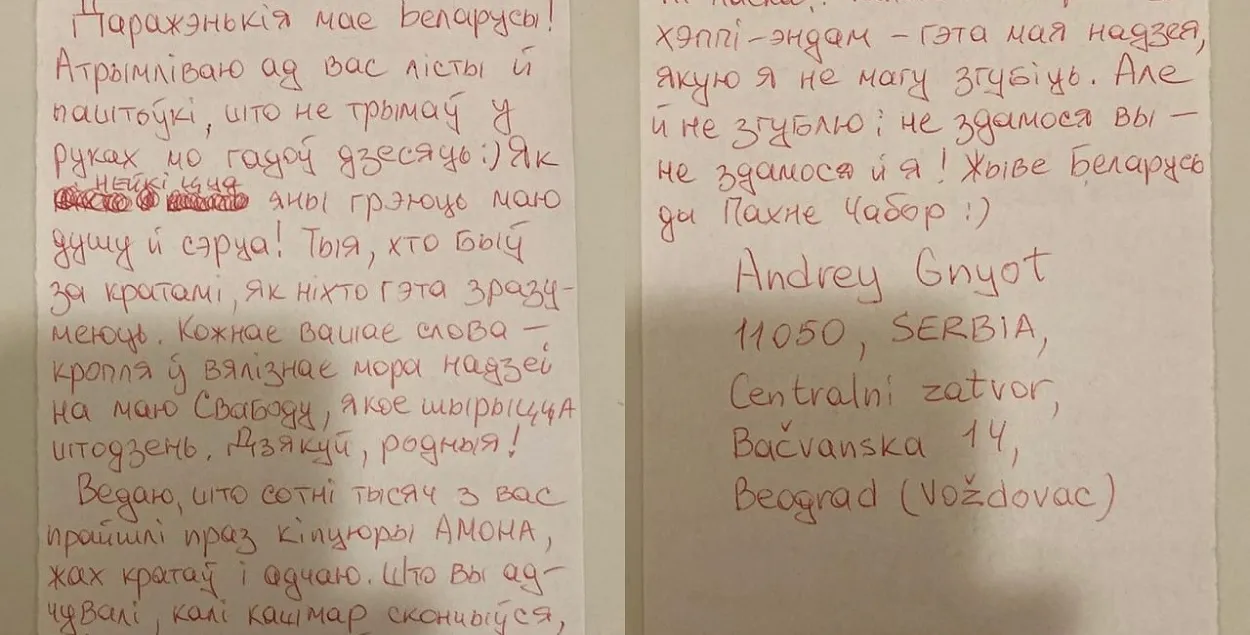 Даражэнькія мае Беларусы!
Атрымліваю ад вас лісты й
паштоўкі, што не трымаў у
руках мо гадоў дзесяць:) Як
нейкі цуд
яны грэюць маю
душу й сэрца! Тыя, хто быў
за кратамі, як ніхто гэта зразу-
меюць. Кожнае вашае слова –
кропля ў вялізнае мора надзеі
на маю Свабоду, якое шырыцца
штодзень. Дзякуй, родныя!
Ведаю, што сотні тысяч з вас
прайшлі праз кіпцюры АМОНА,
жах кратаў і адчаю. Што вы ад-
чувалі, калі кашмар скончыўся,
хэппі-эндам – гэта мая надзея,
якую я не магу згубіць. Але
й не згублю: не здамося вы –
не здамося й я! Жыве Беларусь
ды Пахне Чабор :)
Andrey Gnyot
11050, SERBIA,
Centralni zatvor,
Bačvanska 14,
Beograd (Voždovac)